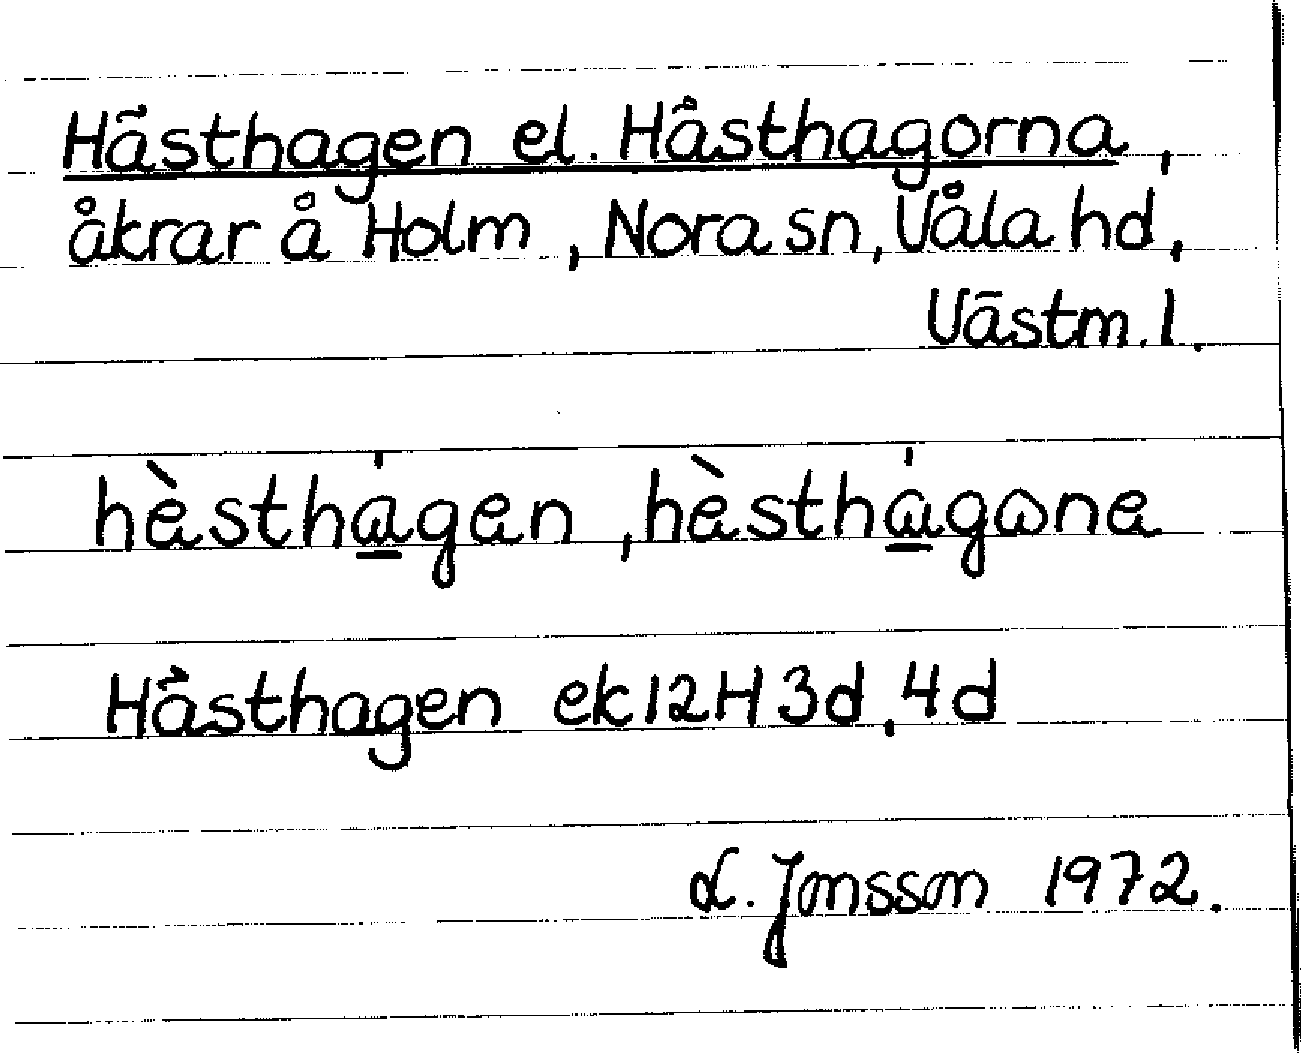 Hästhagen el. Hästhagorna,
åkrar å Holm, Nora sn, Våla hd,
Västm. l.
hèsthágen, hèsthágωne
Hästhagen ek 12H 3d, 4d
L. Jonsson 1972.